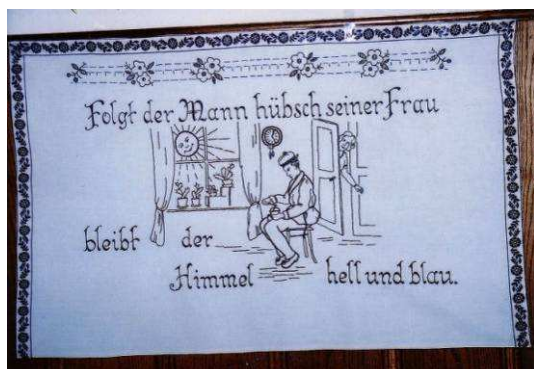 Folgt der Mann hübsch seiner Frau
bleibt der
Himmel hell und blau.